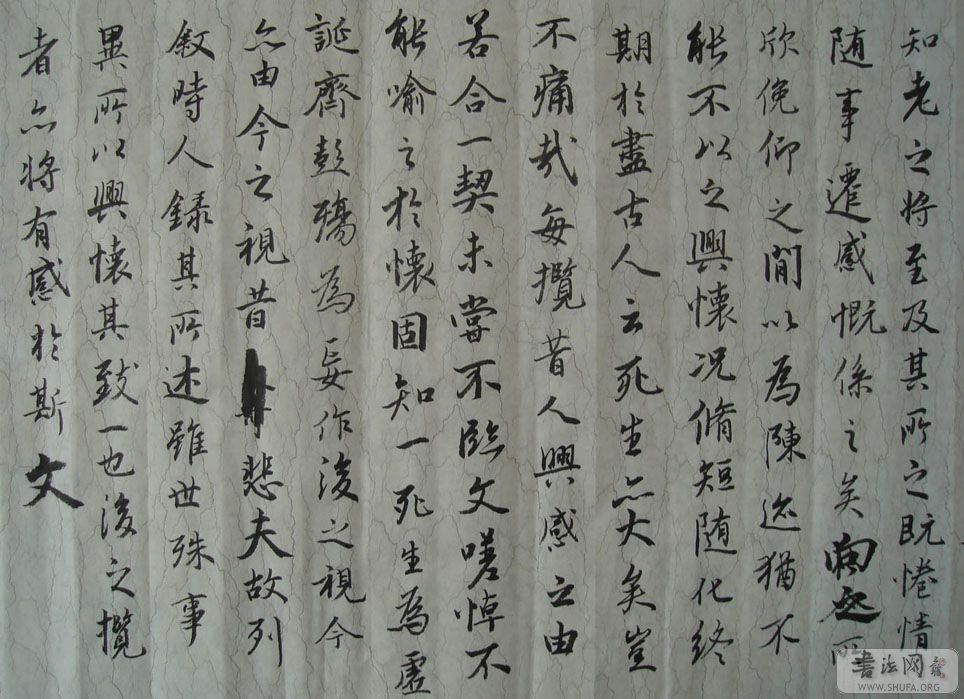 知老之將至及其所之既惓情
随事遷感慨係之矣向之所
欣俛仰之間以為陳迹猶不
能不以之興懷况脩短随化終
期於盡古人云死生亦大矣豈
不痛哉每攬昔人興感之由
若合一契未嘗不臨文嗟悼不
能喻之於懷固知一死生為虚
誕齊彭殤為妄作後之視今
亦由今之視昔悲夫故列
叙時人録其所述雖世殊事
異所以興懷其致一也後之攬
者亦將有感於斯文
書法网
WWW.SHUFA.ORG